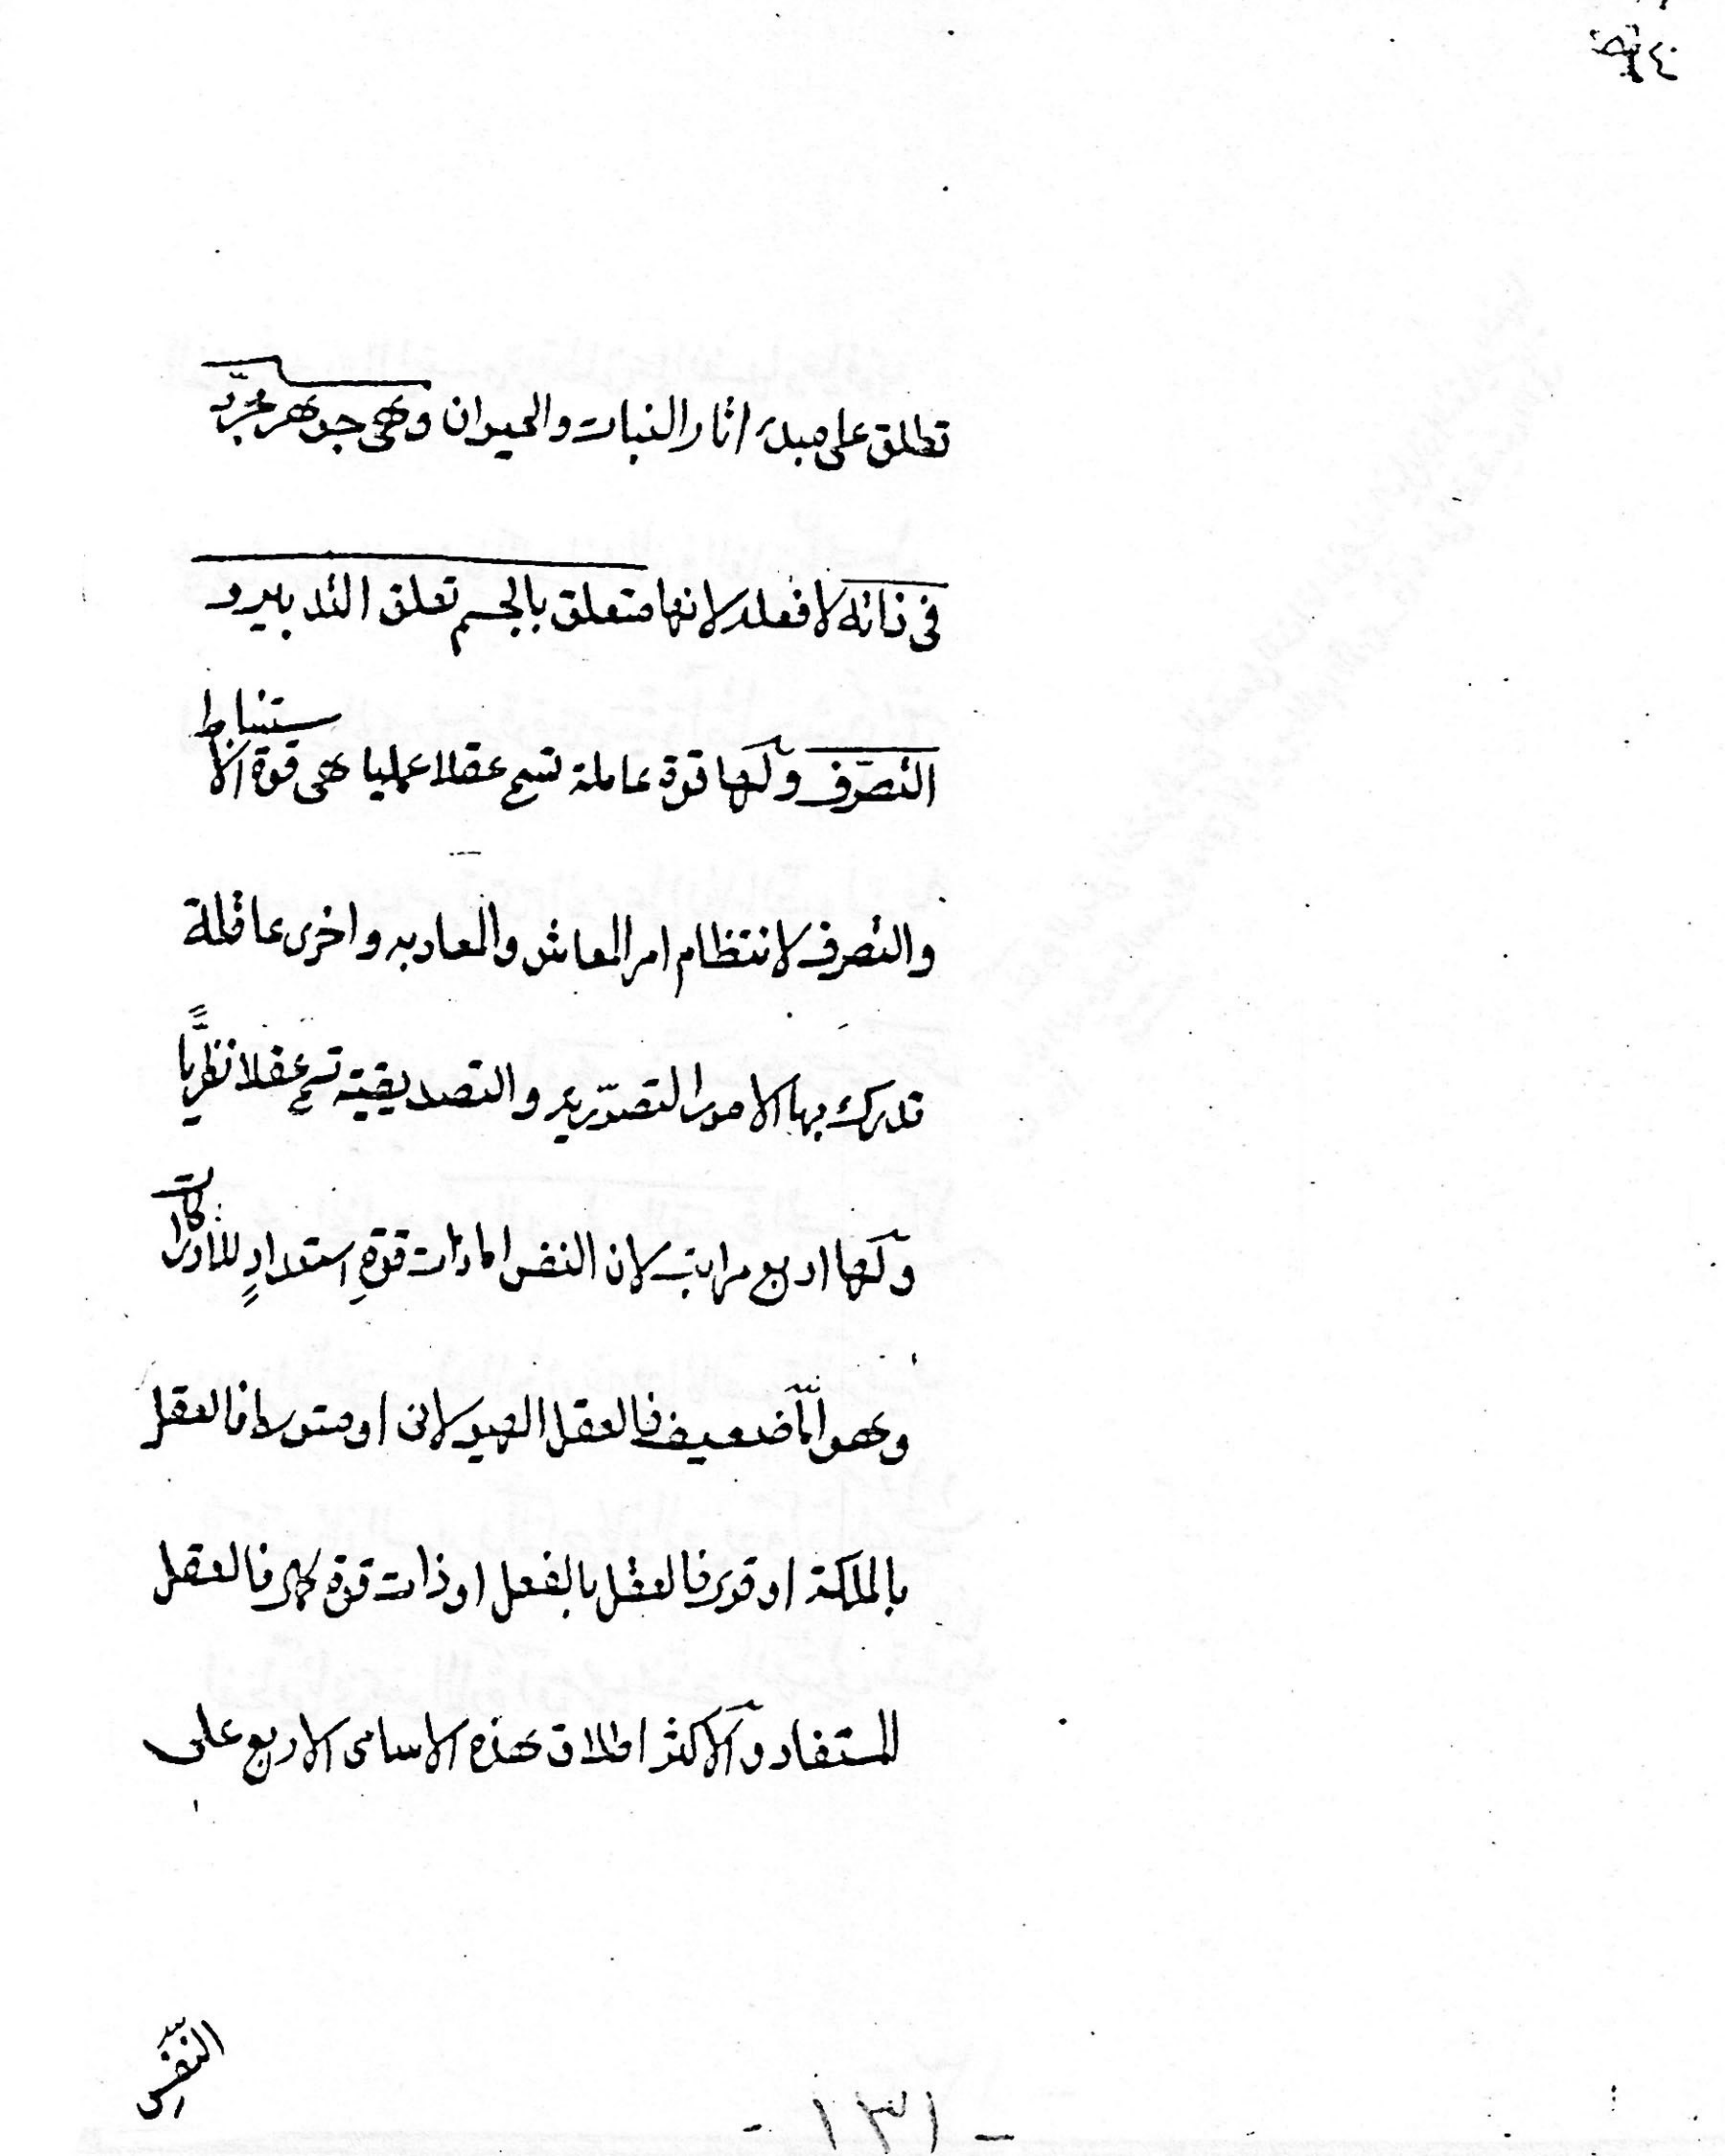 تطلق على مبدء اثار النبات والحيوان وهى جوهر مجرّد
فى ذاته لا فعله لانها متعلق بالجسم تعلق التدبير و
التصرّف ولها قوة عاملة تسمى عقلا عمليا هى قوة الاستنباط
والتصرف لانتظام امر المعاش والمعاد به واخرى عاقلة
تدرك بها الامور التصوّريه والتصديقيّة تسمى عقلا نظريًّا
ولها اربع مراتب لان النفس اما ذات قوةِ استعدادٍ للادراكات
وهو امّا ضعيف فالعقل الهيولانى او متوسط فالعقل
بالملكة او قوى فالعقل بالفعل او ذات قوة كمال فالعقل
المستفاد والاكثر اطلاق هذه الاسامى الاربع على
النفس
- ١٣١ -